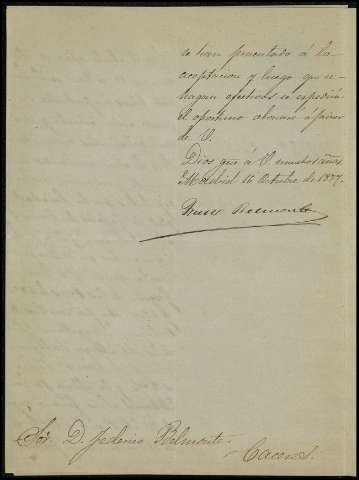 se han presentado á la
aceptacion y luego que se
hagan efectivas se expedirá
el oportuno abonaré á favor
de V.
Dios gue á V muchos años
Madrid 16 Octubre de 1877.
Belmonte
Sor. D. Federico Belmonte.
Caceres.